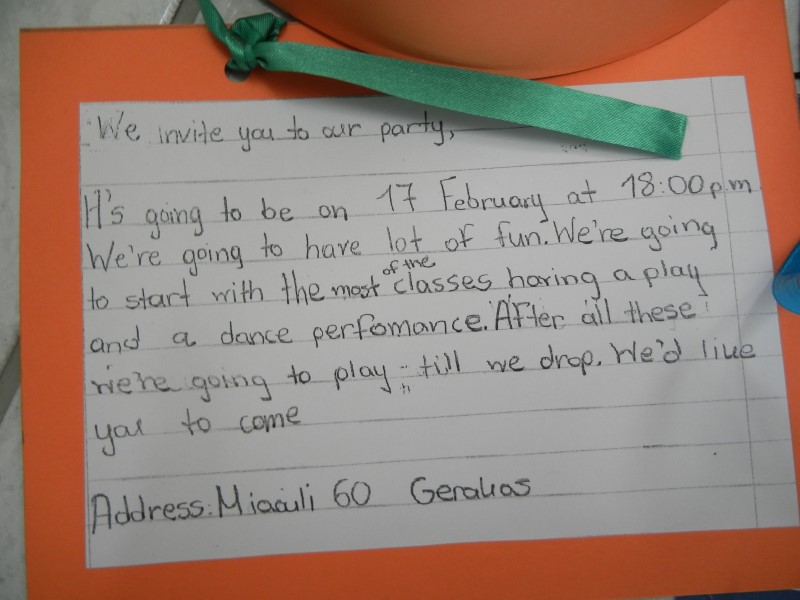 We invite you to our party,
It's going to be on 17 February at 18:00p.m
We're going to have lot of fun. We're going
to start with the most of the classes having a play
and a dance perfomance. After all these
we're going to play till we drop. We'd like
you to come
Address: Miaouli 60 Gerakas